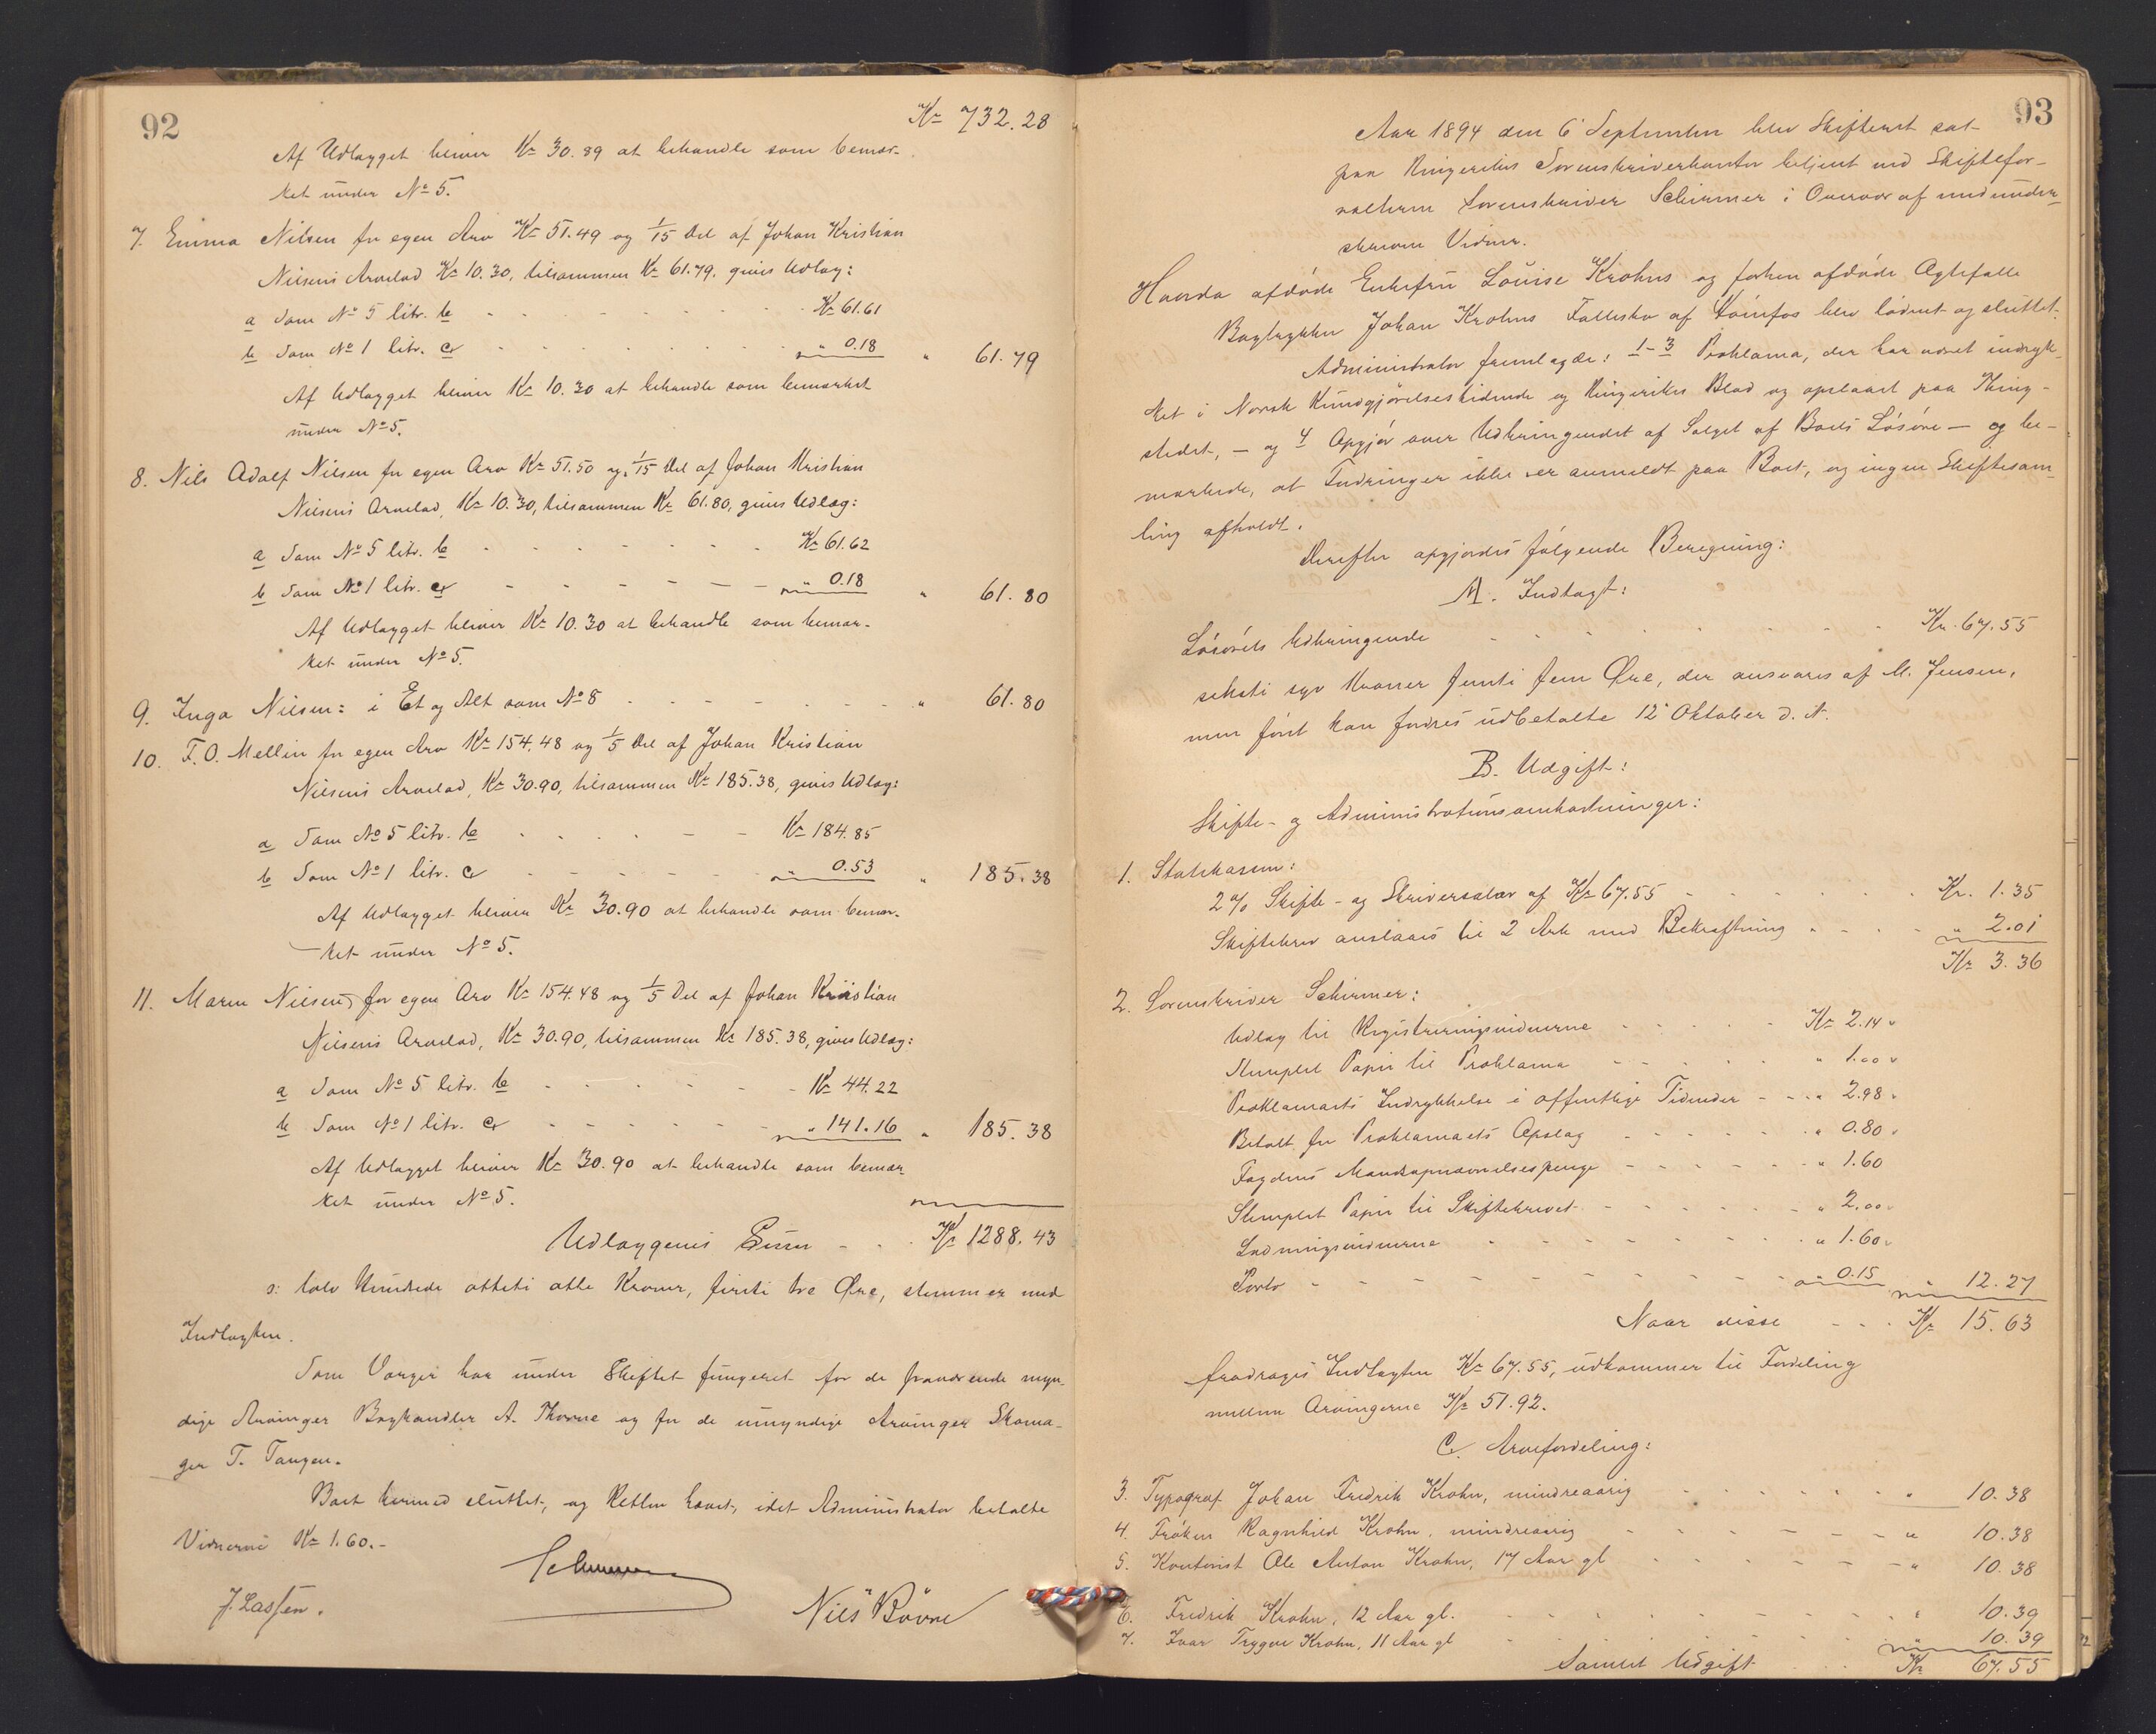 92
Kr 732.28
Af Udlægget bliver Kr 30.89 at behandle som bemær-
ket under No 5.
7. Emma Nilsen for egen Arv Kr 51.49 og 1/15 Del af Johan Kristian
Nilsens Arvelod Kr 10.30, tilsammen Kr 61.79, gives Udlæg:
a Som No 5 litr. b - - - - - - Kr 61.61
b Som No 1 litr. c - - - - - - " 0.18 " 61.79
Af Udlægget bliver Kr 10.30 at behandle som bemærket
under No 5.
8. Nils Adolf Nilsen for egen Arv Kr 51.50 og 1/15 Del af Johan Kristian
Nilsens Arvelod, Kr 10.30, tilsammen Kr 61.80, gives Udlæg:
a Som No 5 litr. b - - - - - - Kr 61.62
b Som No 1 litr. c - - - - - - " 0.18 " 61.80
Af Udlægget bliver Kr 10.30 at behandle som bemær-
ket under No 5.
9. Inga Nilsen: i Et og Alt som No 8 - - - - - - " 61.80
10. F. O. Mellin for egen Arv Kr 154.48 og 1/5 Del af Johan Kristian
Nilsens Arvelod, Kr 30.90, tilsammen Kr 185.38, gives Udlæg:
a Som No 5 litr. b - - - - - Kr 184.85
b Som No 1 litr. c - - - - - " 0.53 " 185.38
Af Udlægget bliver Kr 30.90 at behandle som bemær-
ket under No 5.
11. Maren Nilsen, for egen Arv Kr 154.48 og 1/5 Del af Johan Kristian
Nilsens Arvelod, Kr 30.90, tilsammen Kr 185.38, gives Udlæg:
a Som No 5 litr. b - - - - - - Kr 44.22
b Som No 1 litr. c - - - - - - " 141.16 " 185.38
Af Udlægget bliver Kr 30.90 at behandle som bemær-
ket under No 5.
Udlæggenes Sum - - - Kr 1288.43
ɔ: tolv Hundrede otteti otte Kroner, firti tre Øre, stemmer med
Indtægten.
Som Værger har under Skiftet fungeret for de fraværende myn-
dige Arvinger Boghandler A. Thorne og for de umyndige Arvinger Skoma-
ger T. Tangen.
Boet hermed sluttet, og Retten hævet, idet Administrator betalte
Vidnerne Kr 1.60.-
Schirmer
J. Lassen.
Nils Bövre
93
Aar 1894 den 6' September blev Skifteret sat
paa Ringerikes Sorenskriverkontor betjent ved Skiftefor-
valteren Sorenskriver Schirmer i Overvær af medunder-
skrevne Vidner.
Hvorda afdøde Enkefru Louise Krohns og forhen afdøde Ægtefælle
Bogtrykker Johan Krohns Fællesbo af Hönefos blev lodnet og sluttet.
Administrator fremlagde: 1-3 Proklama, der har været indryk-
ket i Norsk Kundgjørelsestidende og Ringerikes Blad og opslaaet paa Thing-
stedet, - og 4 Opgjør over Udbringendet af Salget af Boets Løsøre - og be-
mærkede, at Fordringer ikke er anmeldt paa Boet, og ingen Skiftesam-
ling afholdt.
Derefter opgjordes følgende Beregning:
A. Indtægt:
Løsørets Udbringende - - - - - - Kr. 67.55
seksti syv Kroner femti fem Øre, der ansvares af M. Jensen,
men først kan fordres udbetalte 12' Oktober d. A.
B. Udgift:
Skifte- og Administrationsomkostninger:
1. Statskassen:
2% Skifte- og Skriversalær af Kr 67.55 - - - - - - Kr. 1.35
Skiftebrev anslaaes til 2 Ark med Bekræftning - - - - " 2.01
Kr 3.36
2. Sorenskriver Schirmer:
Udlæg til Registreringsvidnerne - - - - - Kr 2.14
Stemplet Papir til Proklama - - - - - " 1.00
Proklamaets Indrykkelse i offentlige Tidender - - - " 2.98
Betalt for Proklamaets Opslag - - - - - - " 0.80
Fogdens Mandsopnævnelsespenge - - - - - - " 1.60
Stemplet Papir til Skiftebrevet - - - - - - " 2.00
Lodningsvidnerne - - - - - - - " 1.60
Porto - - - - - - - - - " 0.15 " 12.27
Naar disse - - - Kr 15.63
fradrages Indtægten Kr 67.55, udkommer til Fordeling
mellem Arvingerne Kr 51.92.
C. Arvefordeling:
3. Typograf Johan Fredrik Krohn, mindreaarig - - - - - - " 10.38
4. Frøken Ragnhild Krohn, mindreaarig - - - - - - " 10.38
5. Kontorist Ole Anton Krohn, 17 Aar gl - - - - - - " 10.38
6. Fredrik Krohn, 12 Aar gl. - - - - - - " 10.39
7. Ivar Trygve Krohn, 11 Aar gl - - - - - - " 10.39
Samlet Udgift - - - Kr 67.55